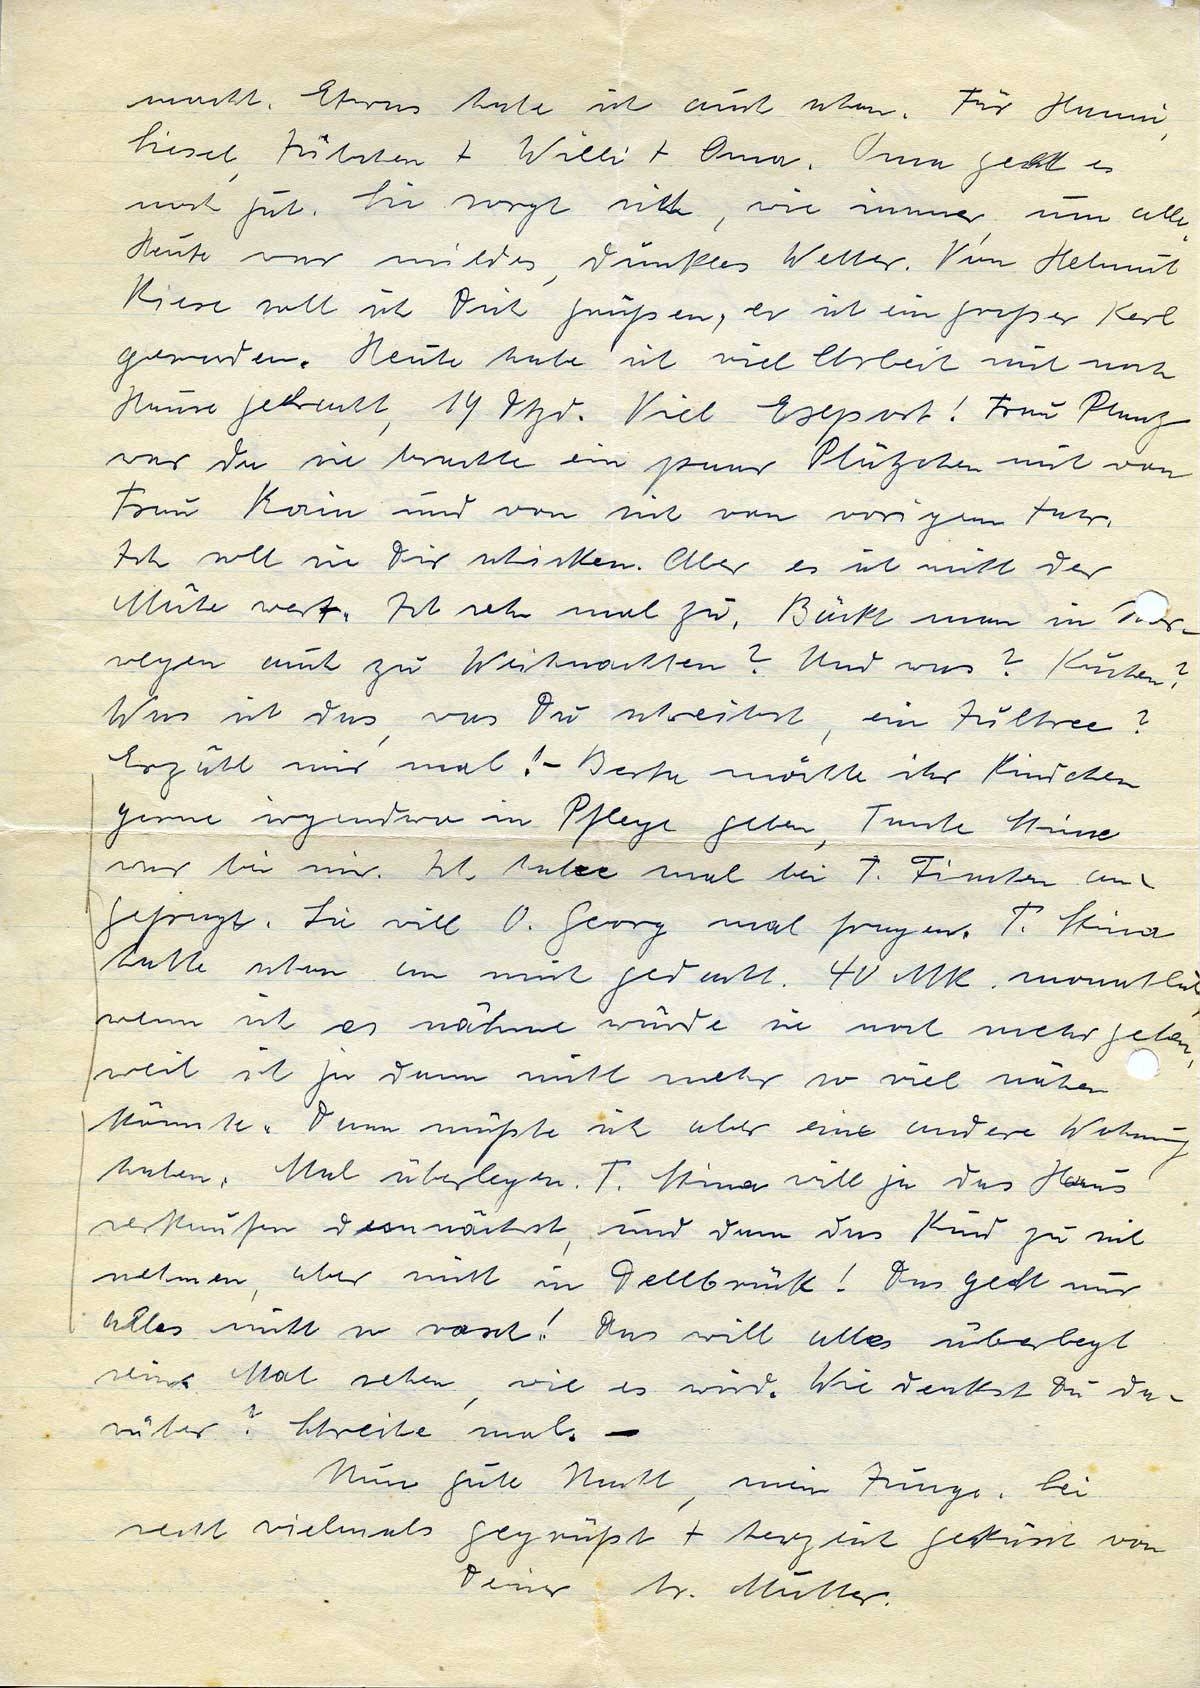 macht. Etwas habe ich auch schon. Für Hanni,
Liesel, Julchen + Willi + Oma. Oma geht es
noch gut. Sie sorgt sich, wie immer, um alle.
Heute war mildes, dunkles Wetter. Von Helmut
Riese soll ich Dich grüßen, er ist ein großer Kerl
geworden. Heute habe ich viel Arbeit mit nach
Hause gebracht, 14 Dtzd. Viel Export! Frau Planz
war da sie brachte ein paar Plätzchen mit von
Frau Korin und von sich von vorigem Jahr.
Ich soll sie Dir schicken. Aber es ist nicht der
Mühe wert. Ich seh mal zu. Backt man in Nor-
wegen auch zu Weihnachten? Und was? Kuchen?
Was ist das, was Du schreibst, ein Jultree?
Erzähl mir mal! – Berta möchte ihr Kindchen
gerne irgendwo in Pflege geben, Tante Mina
war bei mir. Ich habe mal bei T. Finchen an-
gefragt. Sie will O. Georg mal fragen. T. Mina
hatte schon an mich gedacht. 40 MK. monatlich,
wenn ich es nähme würde sie noch mehr geben,
weil ich ja dann nicht mehr so viel nähen
könnte. Dann müßte ich aber eine andere Wohnung
haben. Mal überlegen. T. Mina will ja das Haus
verkaufen demnächst, und dann das Kind zu sich
nehmen, aber nicht in Dellbrück! Das geht nur
alles nicht so rasch! Das will alles überlegt
sein. Mal sehen, wie es wird. Wie denkst Du da-
rüber? Schreibe mal. –
Nun gute Nacht, mein Junge. Sei
recht vielmals gegrüßt + herzlich geküsst von
Deiner lb. Mutter.